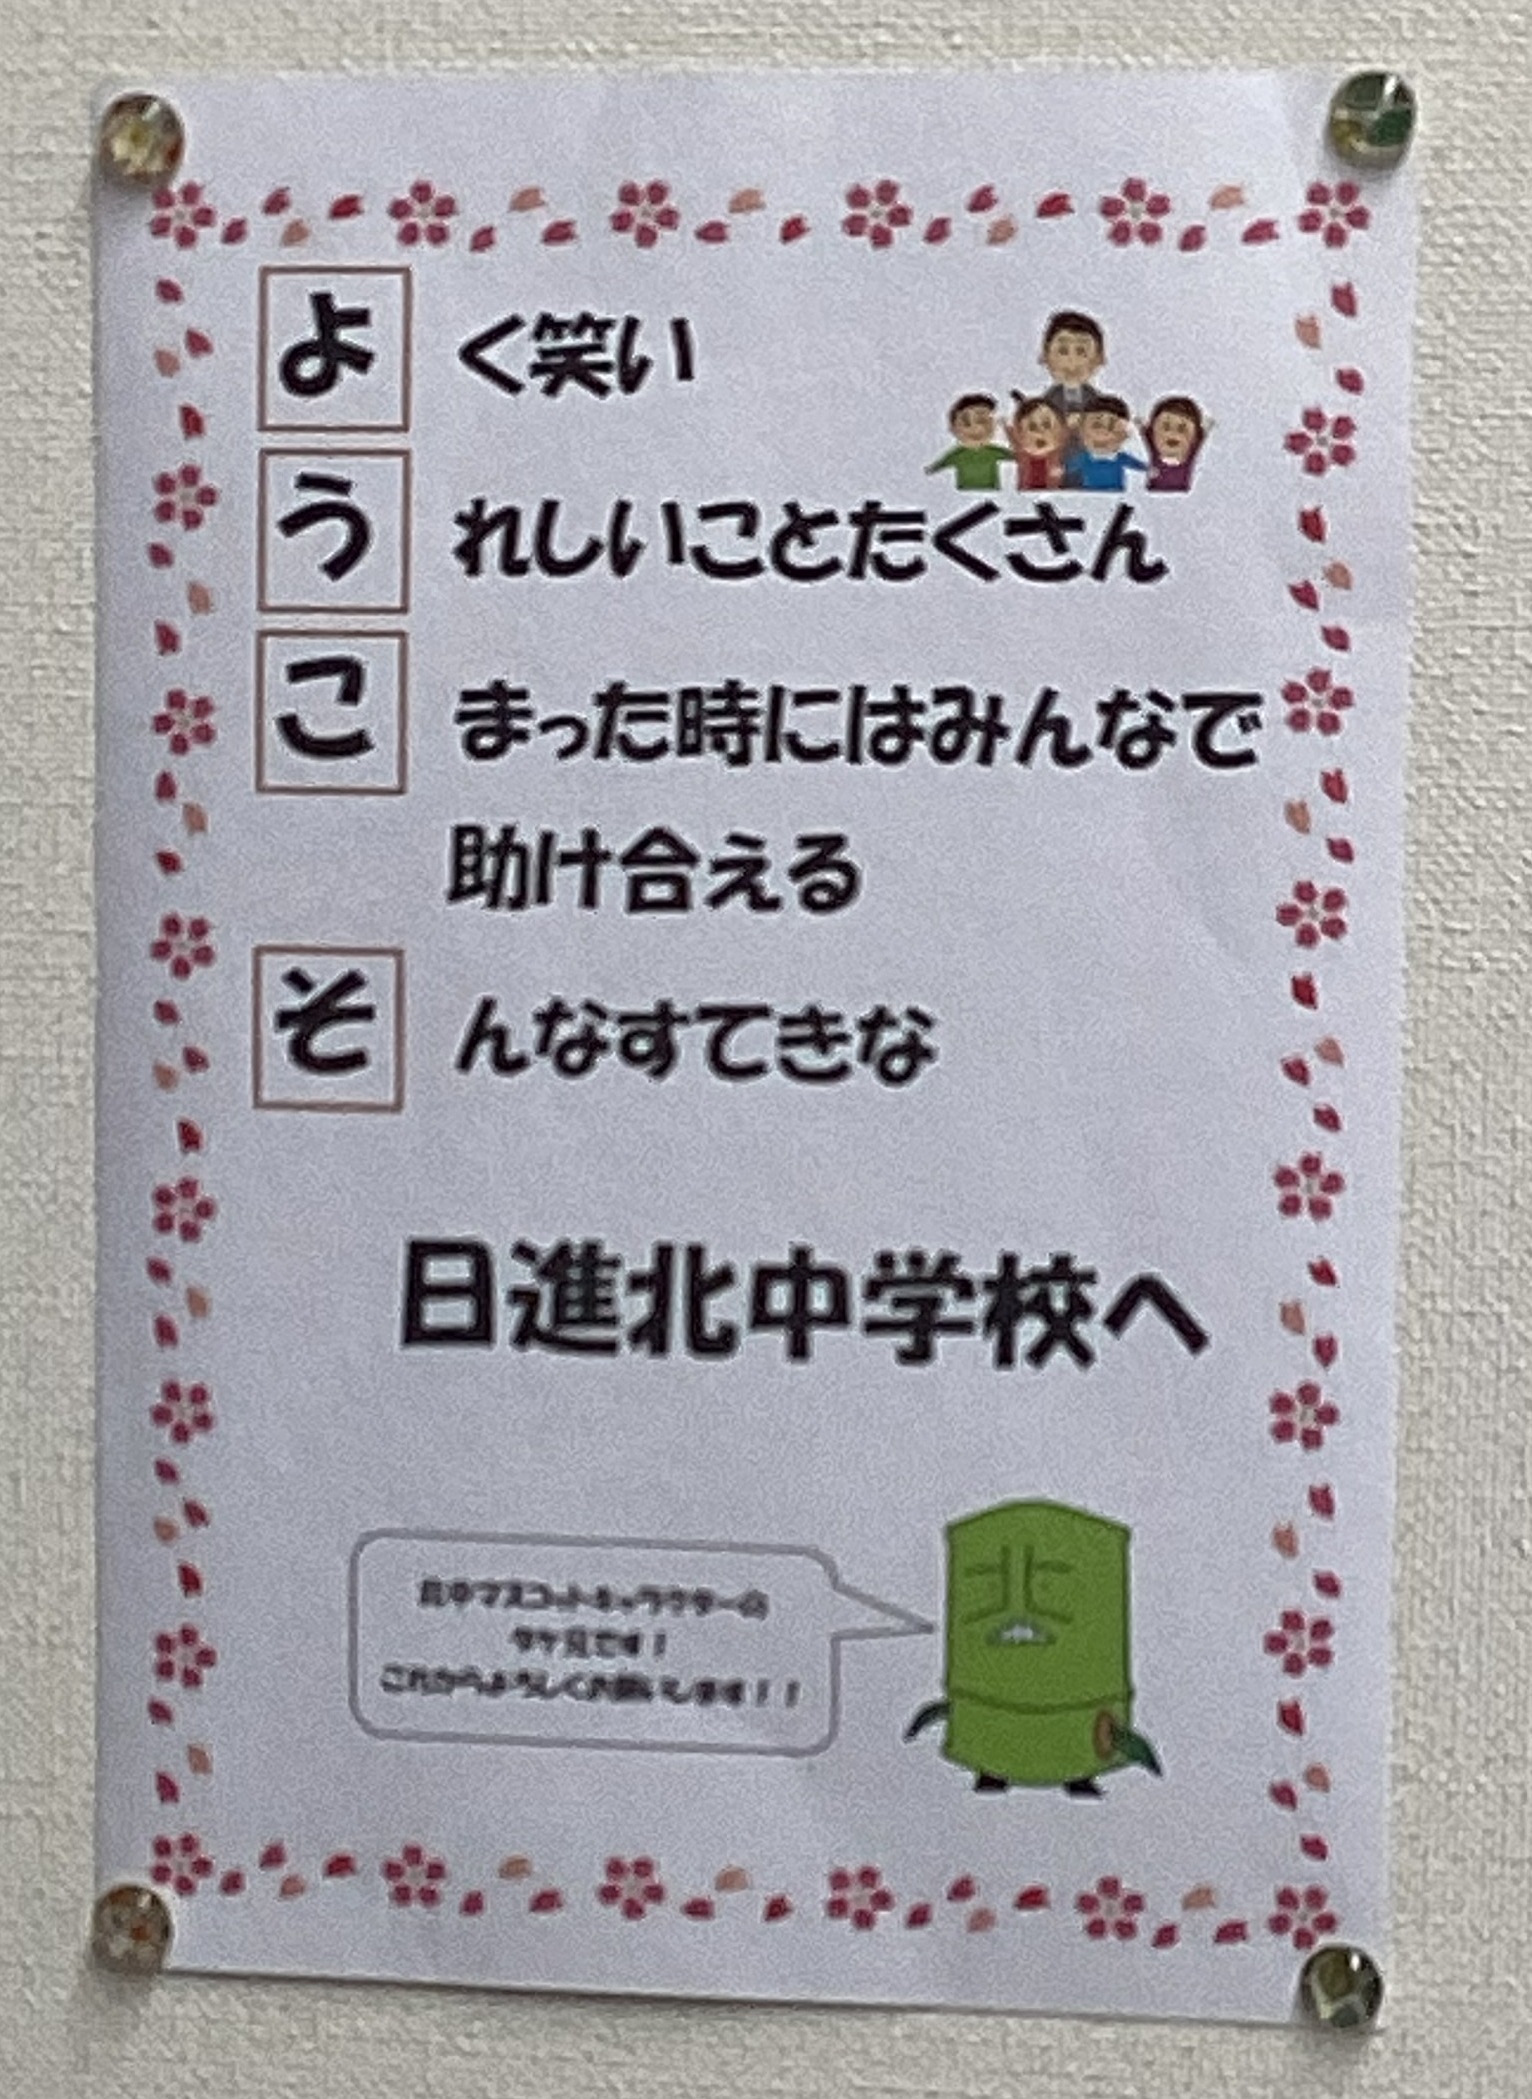 よく笑い
うれしいことたくさん
こまった時にはみんなで
助け合える
そんなすてきな
日進北中学校へ
北中マスコットキャラクターの
タケ兄です！
これからよろしくお願いします！！